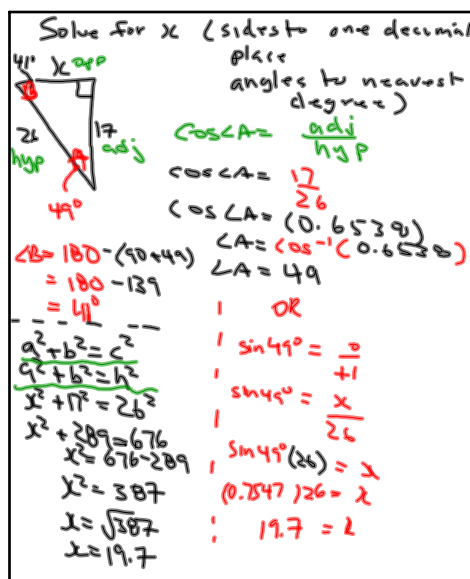 Solve for x (sides to one decimal
place
angles to nearest
degree)
41°
x opp
B
26
hyp
17
adj
A
49°
cos∠A = adj/hyp
cos∠A = 17/26
cos∠A = (0.6538)
∠A = cos⁻¹(0.6538)
∠A = 49
∠B = 180 - (90+49)
= 180 - 139
= 41°
a² + b² = c²
a² + b² = h²
x² + 17² = 26²
x² + 289 = 676
x² = 676 - 289
x² = 387
x = √387
x = 19.7
OR
sin 49° = o/+1
sin 49° = x/26
sin 49° (26) = x
(0.7547)26 = x
19.7 = x